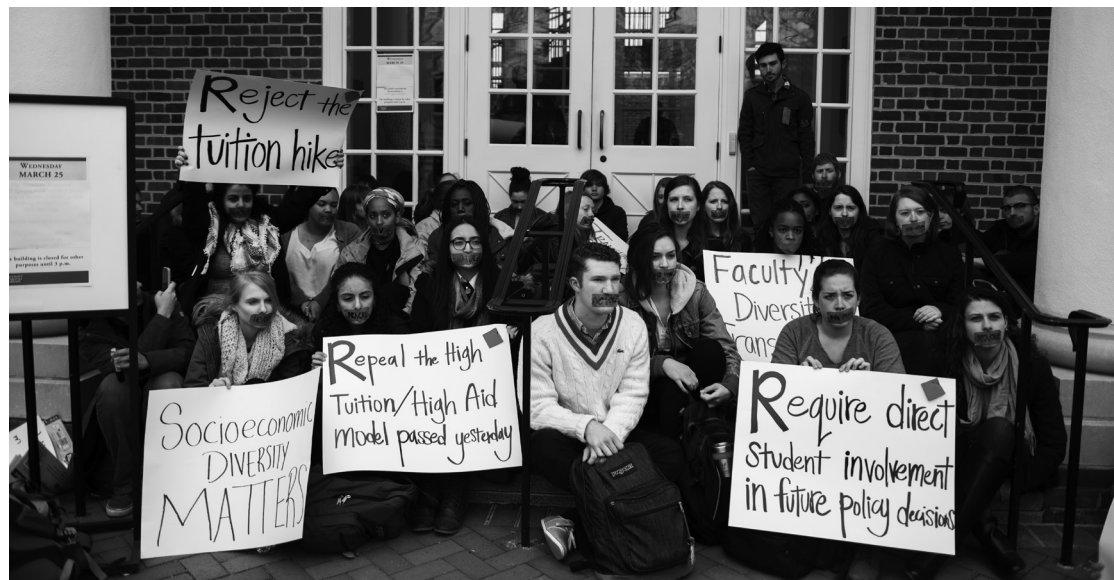 Reject the
tuition hike
WEDNESDAY
MARCH 25
building is closed for other
purposes until 3 p.m.
Socioeconomic
DIVERSITY
MATTERS
Repeal the High
Tuition/High Aid
model passed yesterday
Faculty
Diversit
Trans
Require direct
student involvement
in future policy decisions
JANSPORT